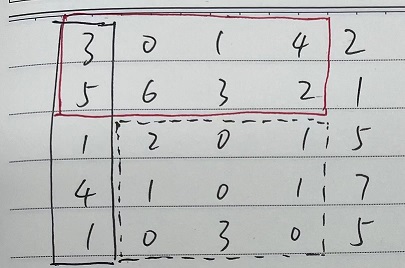 3 0 1 4 2
5 6 3 2 1
1 2 0 1 5
4 1 0 1 7
1 0 3 0 5